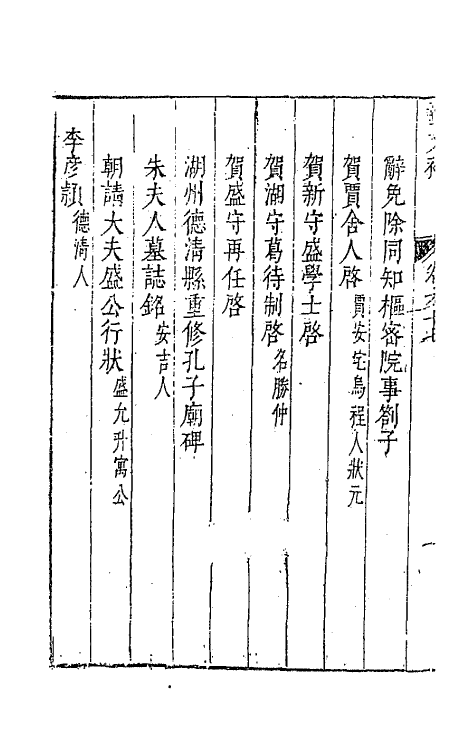 辭免除同知樞密院事劄子
賀賈舍人啓賈安宅烏程人狀元
賀新守盛學士啓
賀湖守葛待制啓名勝仲
賀盛守再任啓
湖州德清縣重修孔子廟碑
朱夫人墓誌銘安吉人
朝請大夫盛公行狀盛允升寓公
李彥頴德清人